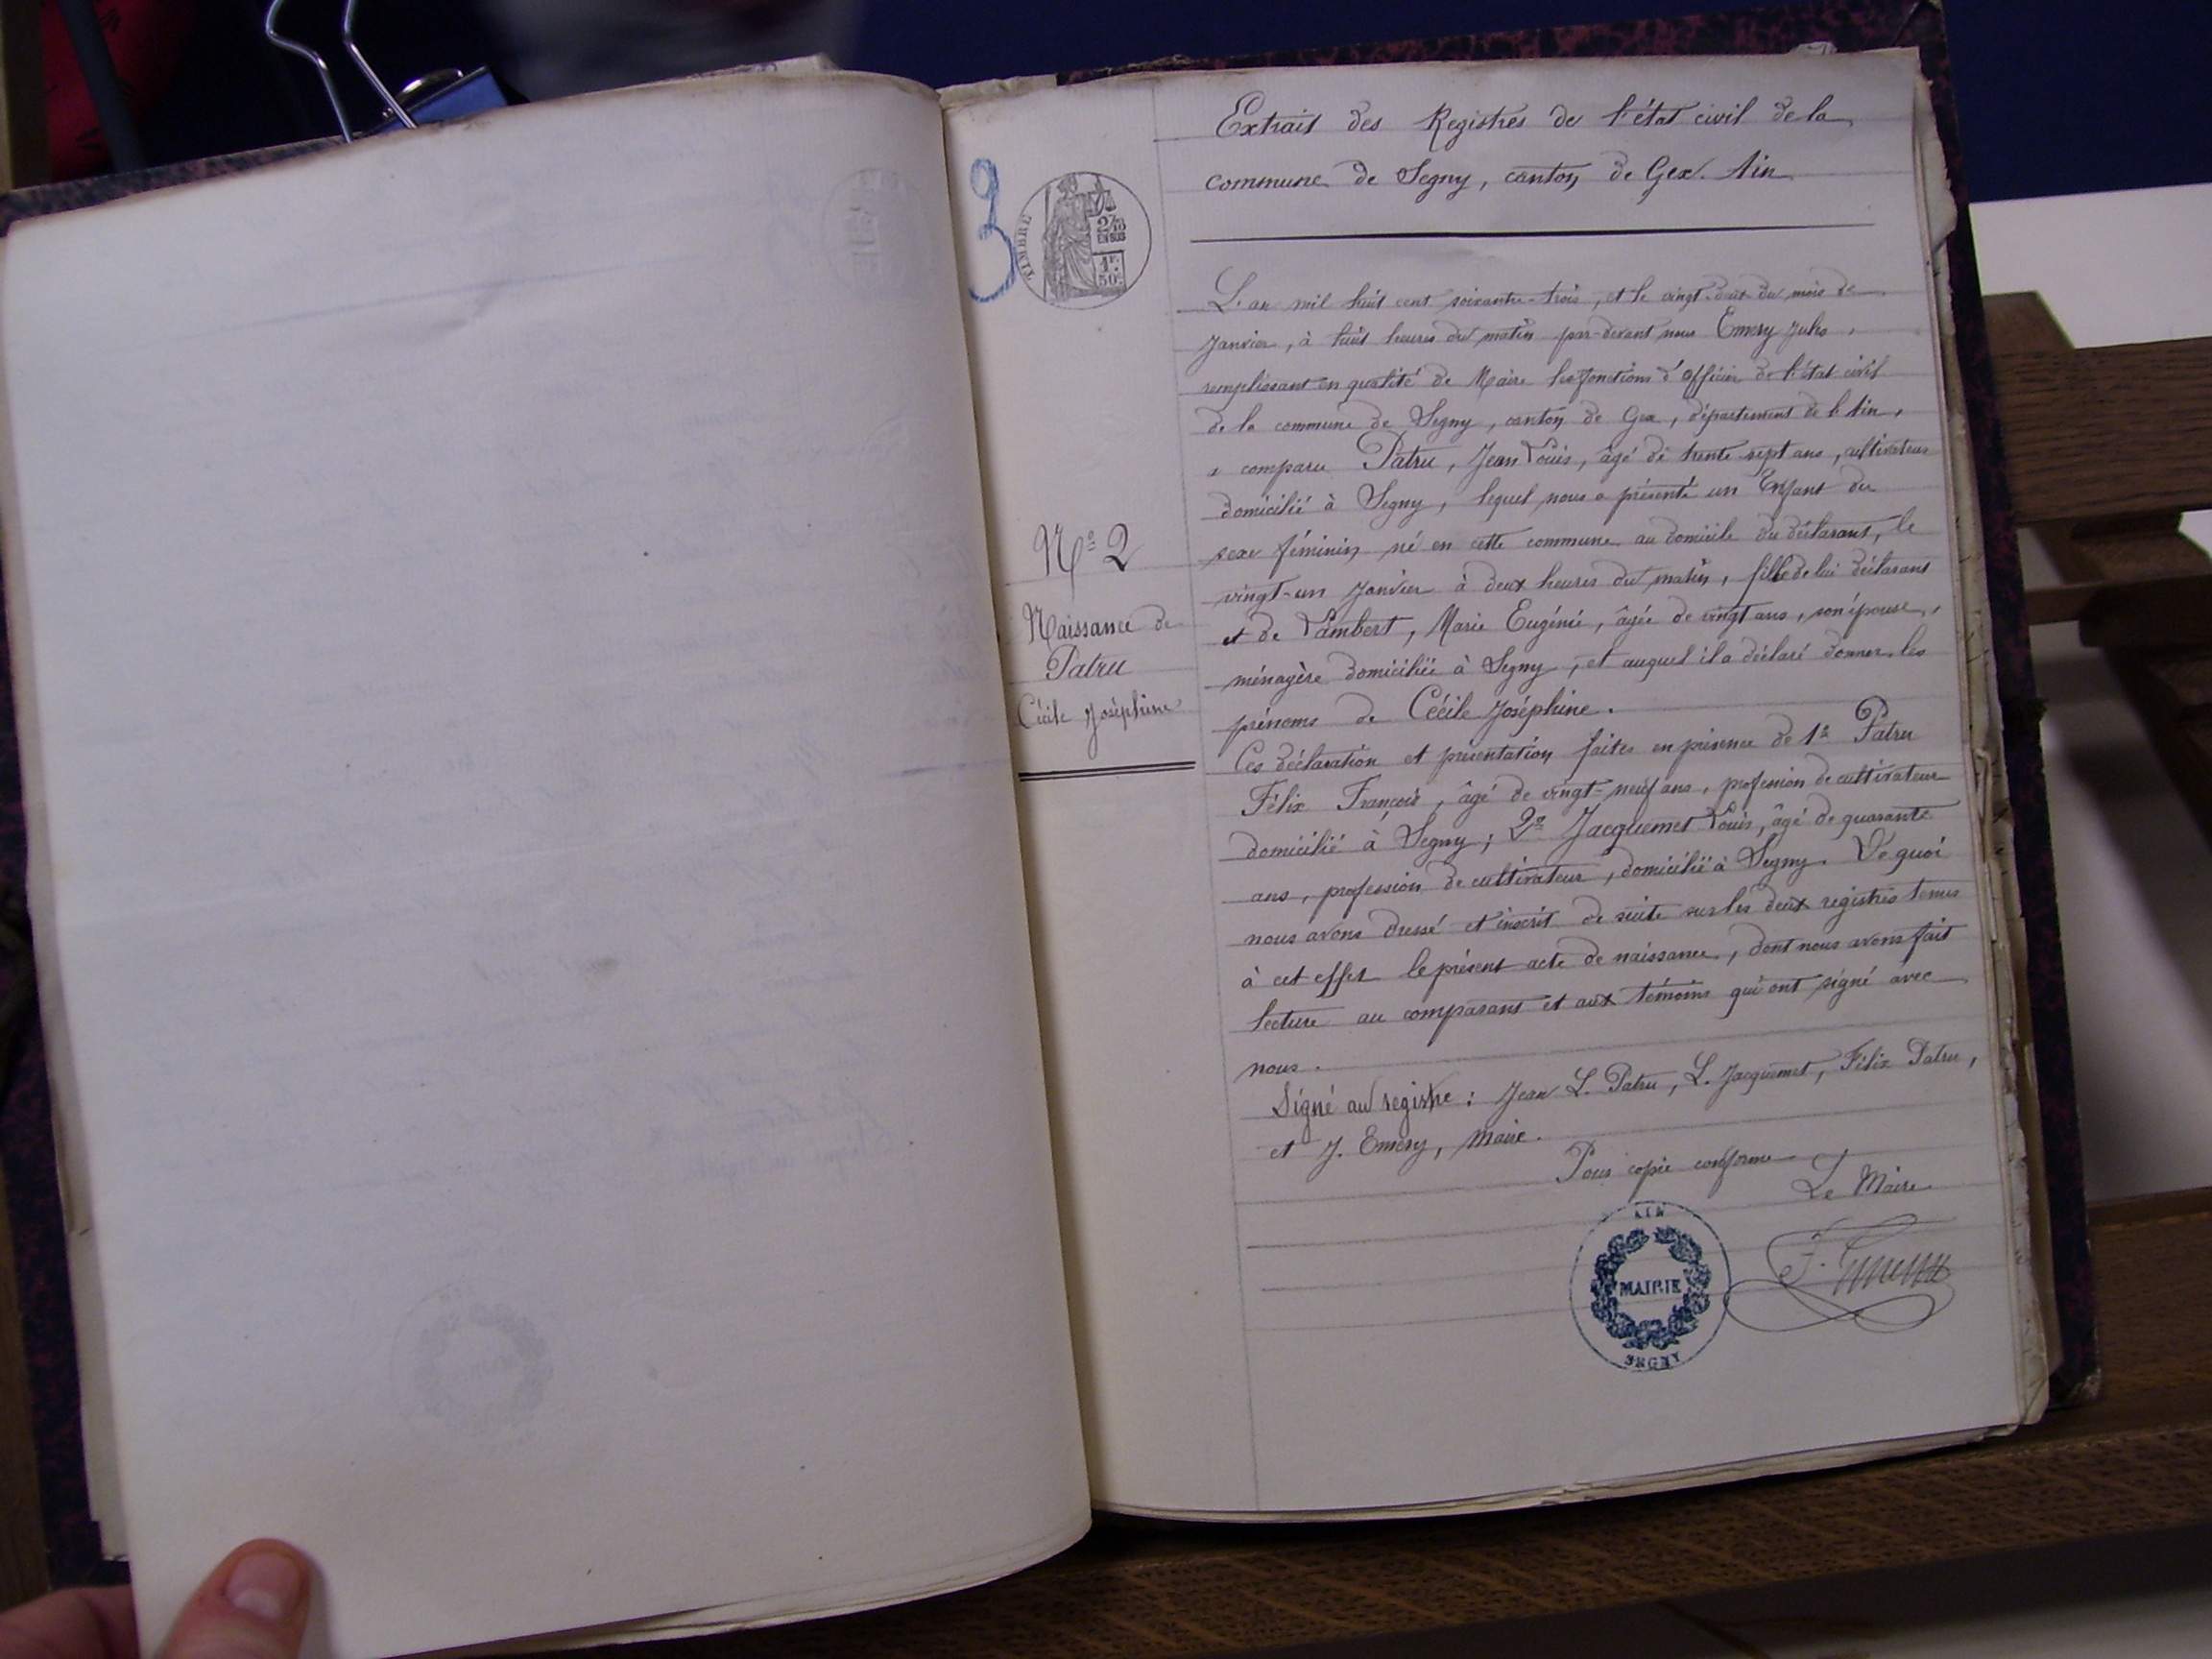 Extrait des Registres de l'état civil de la
commune de Segny, canton de Gex. Ain
3
TIMBRE
2/10
EN SUS
1F.
50C.
L'an mil huit cent soixante-trois, et le vingt-deux du mois de
Janvier, à huit heures du matin par-devant nous Emery Jules,
remplissant en qualité de Maire les fonctions d'officier de l'état civil
de la commune de Segny, canton de Gex, département de l'Ain,
a comparu Patru, Jean Louis, âgé de trente-sept ans, cultivateur
domicilié à Segny, lequel nous a présenté un Enfant du
sexe féminin né en cette commune au domicile du déclarant, le
vingt-un Janvier à deux heures du matin, fille de lui déclarant
et de Lambert, Marie Eugénie, âgée de vingt ans, son épouse,
ménagère domiciliée à Segny, et auquel il a déclaré donner les
prénoms de Cécile Joséphine.
Ces déclaration et présentation faites en présence de 1º Patru
Félix François, âgé de vingt-neuf ans, profession de cultivateur
domicilié à Segny; 2º Jacquemet Louis, âgé de quarante
ans, profession de cultivateur, domicilié à Segny. De quoi
nous avons dressé et inscrit de suite sur les deux registres tenus
à cet effet le présent acte de naissance, dont nous avons fait
lecture au comparant et aux témoins qui ont signé avec
nous.
Signé au registre: Jean L. Patru, L. Jacquemet, Félix Patru,
et J. Emery, maire.
Pour copie conforme
Le Maire
J. Emery
AIN
MAIRIE
SEGNY
Nº 2
Naissance de
Patru
Cécile Joséphine